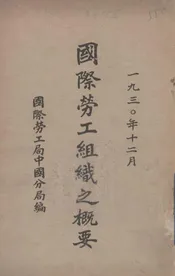 一九三〇年十二月
國際勞工組織之概要
國際勞工局中國分局編